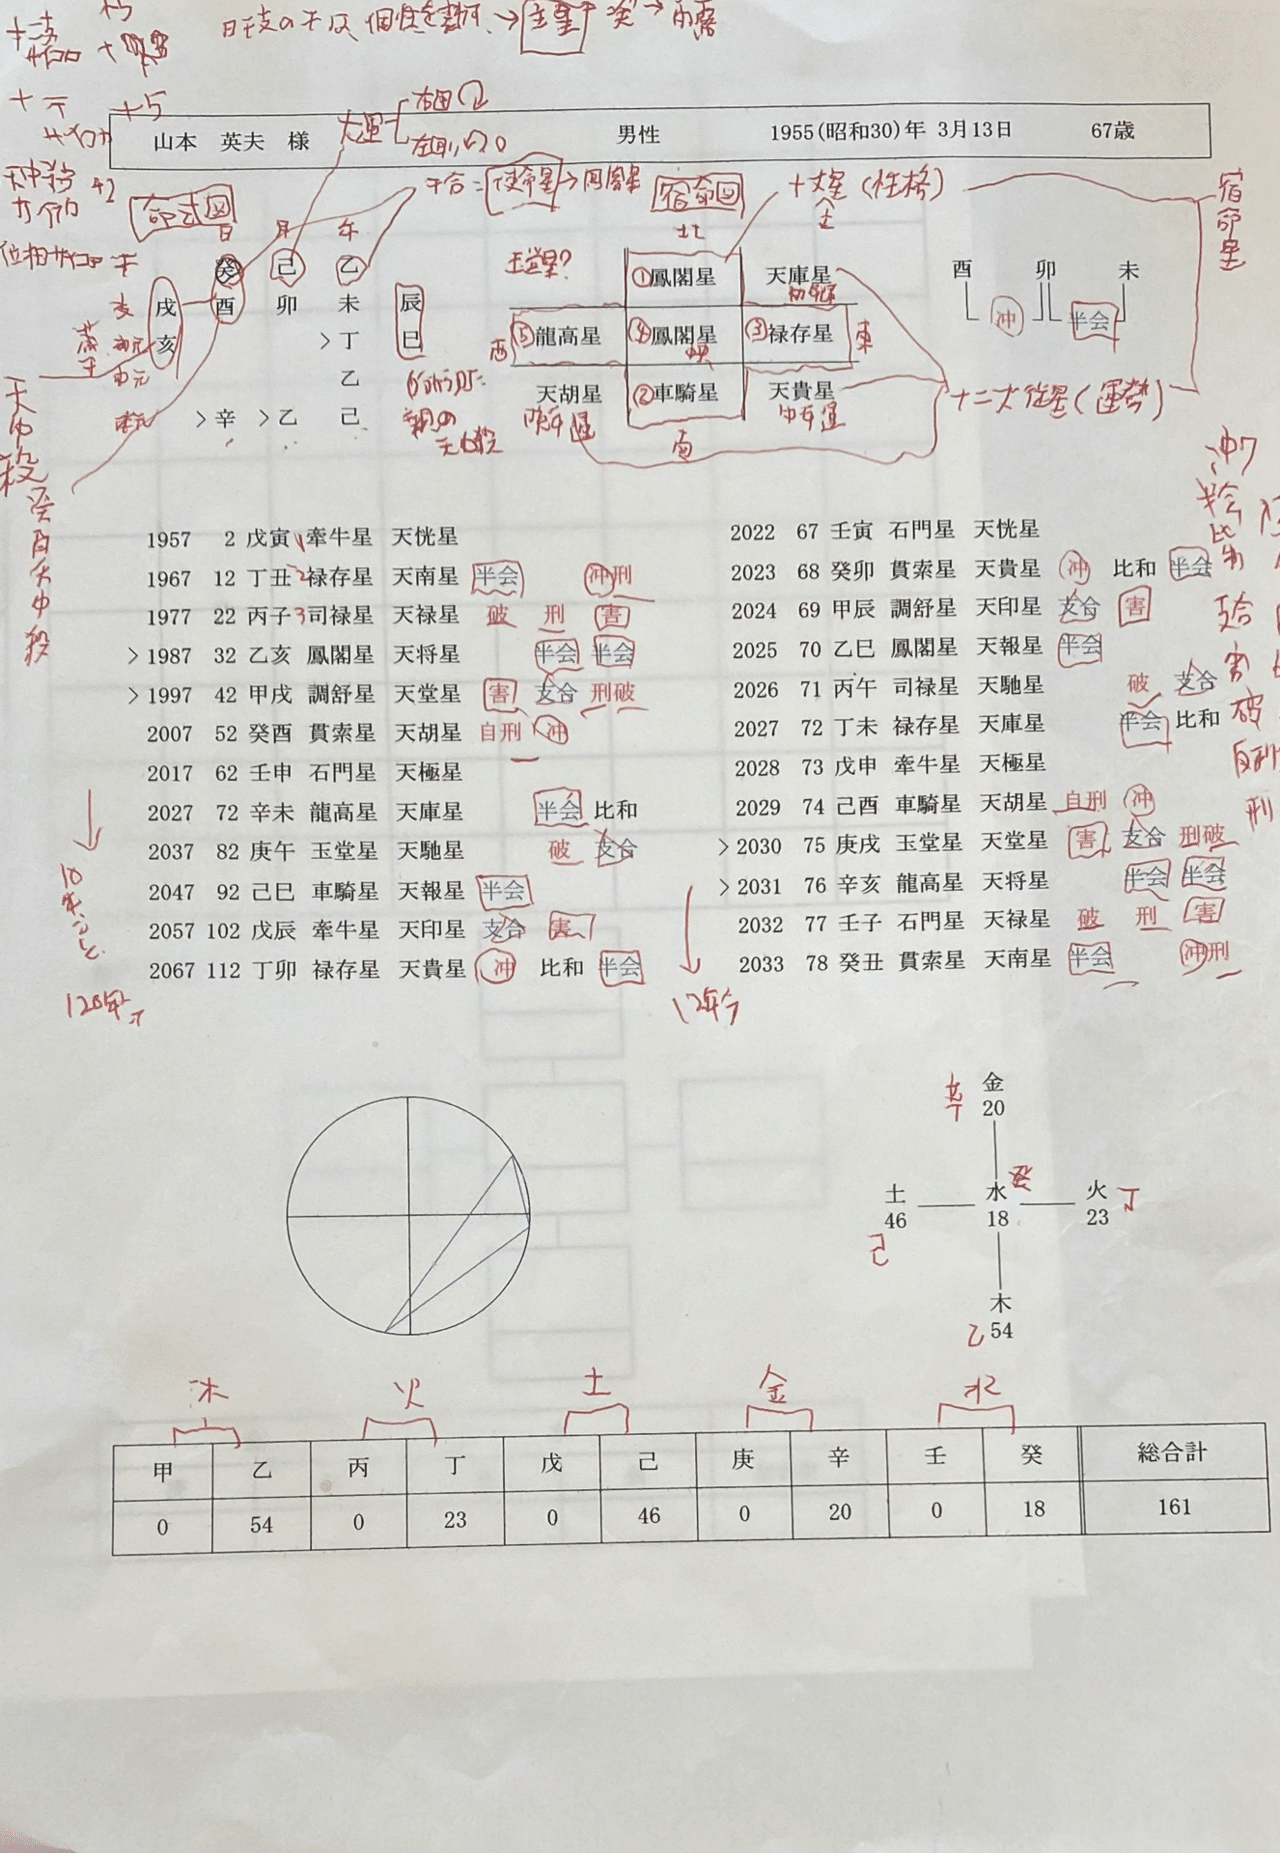 日干支の干は、個性を表示→主星→癸→雨露
十二支
サイコロ
十干 +5
サイコロ
大運 右回り
左回り
山本 英夫 様 男性 1955(昭和30)年 3月13日 67歳
天中殺 +2
干合=使命星→
命式図
宿命図
十大主星(性格)
宿命星
日 月 年
北
癸 己 乙
玉堂星?
①鳳閣星 天庫星
酉 卯 未
初年運
戌 酉 卯 未 辰
冲 半会
亥 >丁 巳
西 ⑤龍高星 ④鳳閣星 ③禄存星 東
初元
中元
乙
天胡星 ②車騎星 天貴星
十二大従星(運勢)
晩年運 中年運
本元 >辛 >乙 己
親の
天中殺
南
天中殺
癸酉天中殺
1957 2 戊寅 1 牽牛星 天恍星
1967 12 丁丑 2 禄存星 天南星 半会 冲刑
1977 22 丙子 3 司禄星 天禄星 破 刑 害
>1987 32 乙亥 鳳閣星 天将星 半会 半会
>1997 42 甲戌 調舒星 天堂星 害 支合 刑破
2007 52 癸酉 貫索星 天胡星 自刑 冲
2017 62 壬申 石門星 天極星
2027 72 辛未 龍高星 天庫星 半会 比和
2037 82 庚午 玉堂星 天馳星 破 支合
2047 92 己巳 車騎星 天報星 半会
2057 102 戊辰 牽牛星 天印星 支合 害
2067 112 丁卯 禄存星 天貴星 冲 比和 半会
10年ごと
120年分
2022 67 壬寅 石門星 天恍星
2023 68 癸卯 貫索星 天貴星 冲 比和 半会
2024 69 甲辰 調舒星 天印星 支合 害
2025 70 乙巳 鳳閣星 天報星 半会
2026 71 丙午 司禄星 天馳星 破 支合
2027 72 丁未 禄存星 天庫星 半会 比和
2028 73 戊申 牽牛星 天極星
2029 74 己酉 車騎星 天胡星 自刑 冲
>2030 75 庚戌 玉堂星 天堂星 害 支合 刑破
>2031 76 辛亥 龍高星 天将星 半会 半会
2032 77 壬子 石門星 天禄星 破 刑 害
2033 78 癸丑 貫索星 天南星 半会 冲刑
12年分
冲
半会
比和
支合
害
破
刑
辛 金
20
土 水 癸 火 丁
46 18 23
己
木
乙 54
木 火 土 金 水
甲 乙 丙 丁 戊 己 庚 辛 壬 癸 総合計
0 54 0 23 0 46 0 20 0 18 161